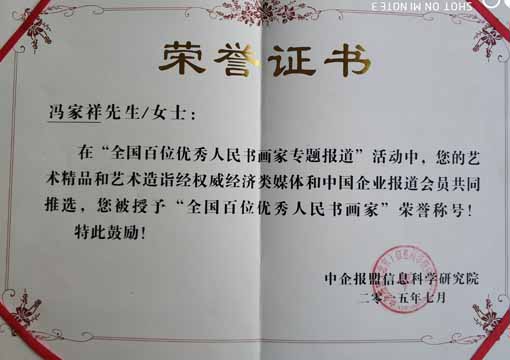 SHOT ON MI NOTE 3
荣誉证书
冯家祥先生/女士：
在“全国百位优秀人民书画家专题报道”活动中，您的艺
术精品和艺术造诣经权威经济类媒体和中国企业报道会员共同
推选，您被授予“全国百位优秀人民书画家”荣誉称号！
特此鼓励！
中企报盟信息科学研究院
二〇一五年七月